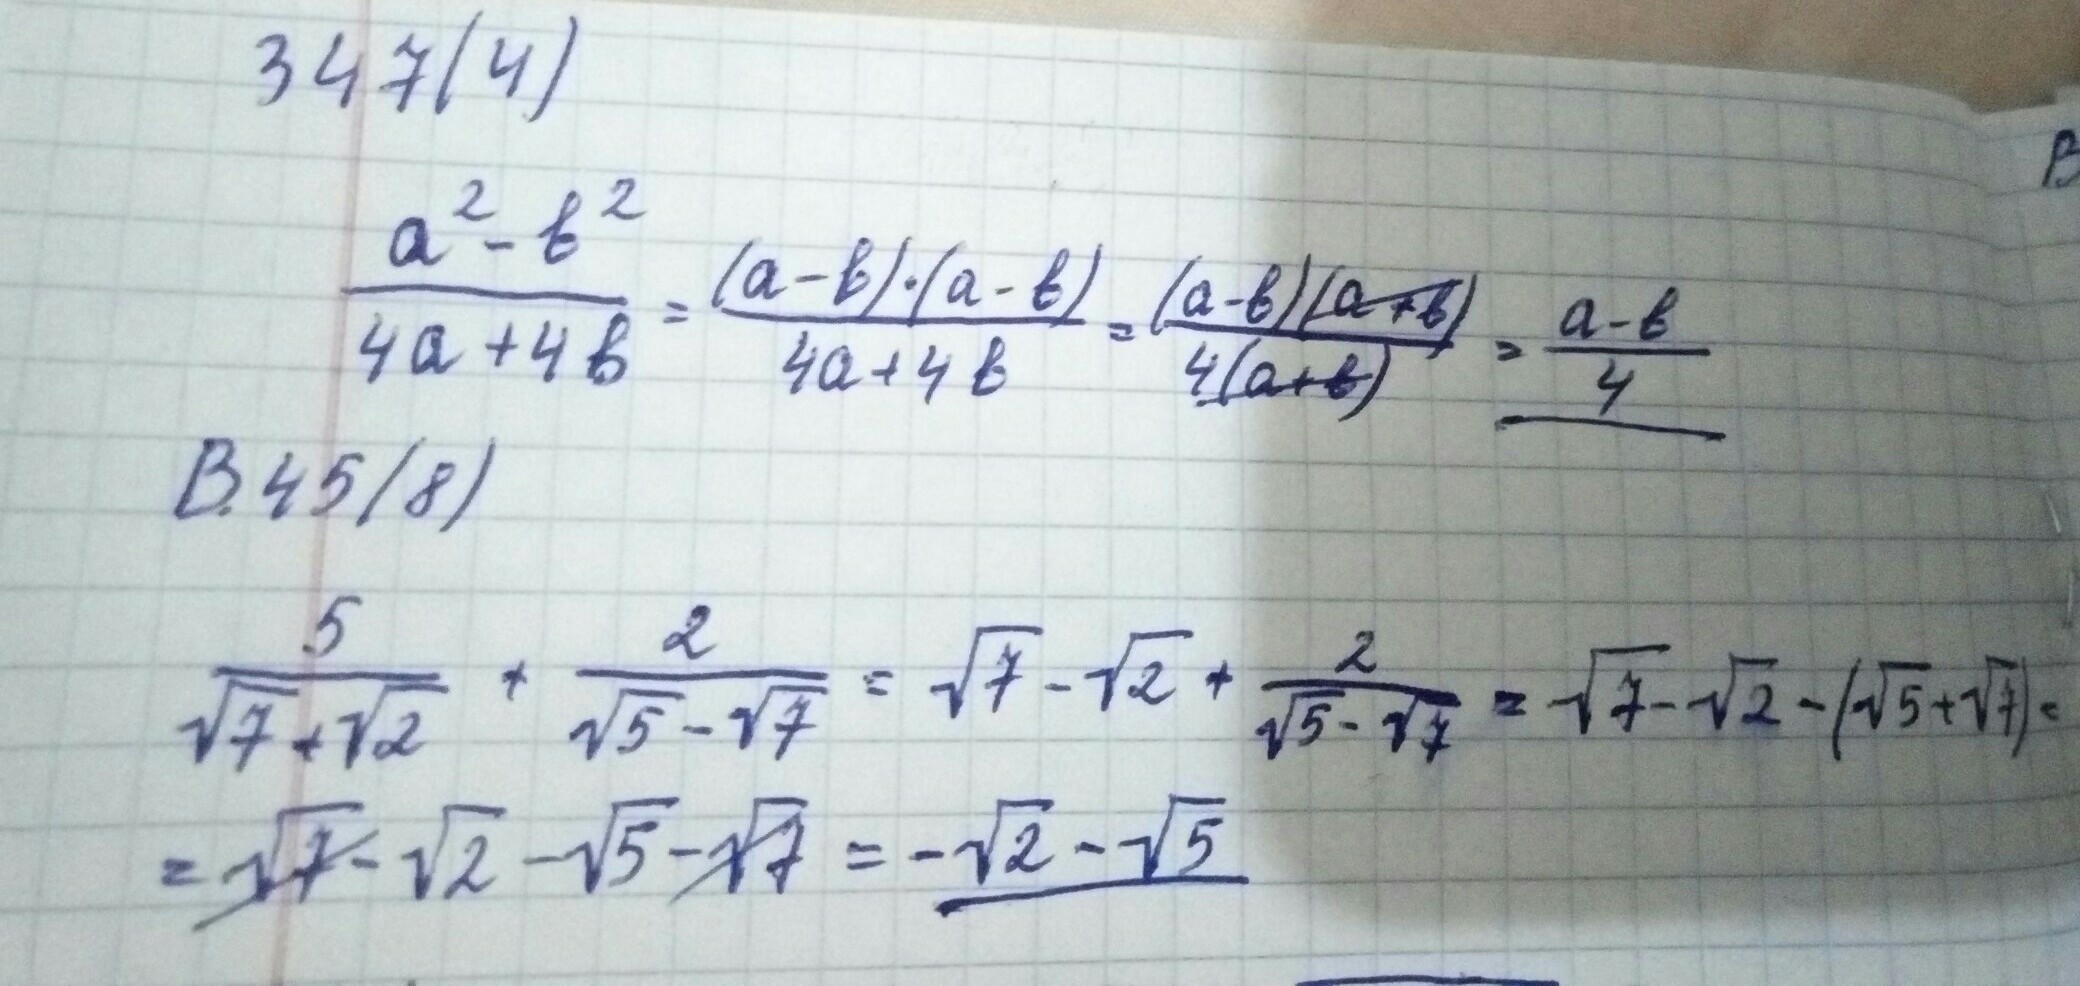 347(4)
a² - b² / 4a + 4b = (a - b)·(a - b) / 4a + 4b = (a - b)(a + b) / 4(a + b) = a - b / 4
B.45(8)
5 / √7 + √2 + 2 / √5 - √7 = √7 - √2 + 2 / √5 - √7 = √7 - √2 - (√5 + √7) =
= √7 - √2 - √5 - √7 = -√2 - √5
B